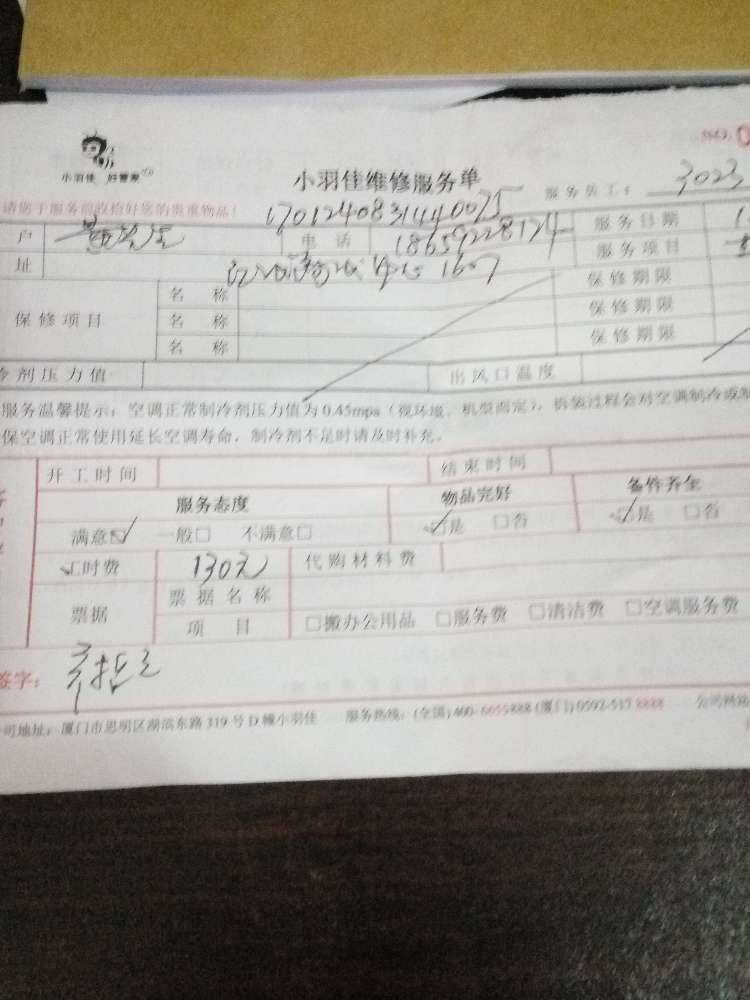 NO.0
小羽佳 好管家
小羽佳维修服务单
服务员工: 3023
请您于服务前收检好您的贵重物品!
1701240831440075
户 电话 18659228124 服务日期
址 1607 服务项目
保修项目
名称 保修期限
名称 保修期限
名称 保修期限
冷剂压力值 出风口温度
服务温馨提示: 空调正常制冷剂压力值为0.45mps(视环境、机型而定), 拆装过程会对空调制冷或制
保空调正常使用延长空调寿命, 制冷剂不足时请及时补充。
开工时间 结束时间
服务态度 物品完好 备件齐全
满意☑ 一般□ 不满意□ ☑是 □否 ☑是 □否
工时费 130元 代购材料费
票据 票据名称
项目 □搬办公用品 □服务费 □清洁费 □空调服务费
签字:
司地址: 厦门市思明区湖滨东路319号D幢小羽佳 服务热线: (全国)400-6655888 (厦门)0592-517 8888 公司网